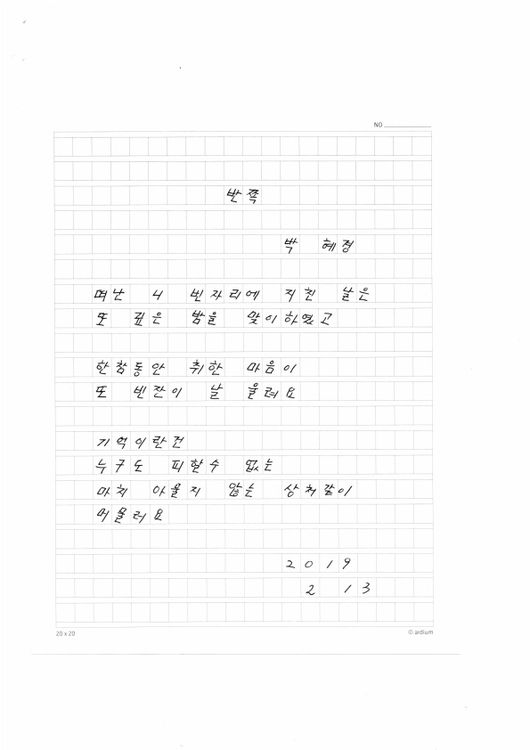 NO
반쪽
박 혜정
떠난 너 빈자리에 지친 날은
또 깊은 밤을 맞이하였고
한참동안 취한 마음이
또 빈잔이 날 울려요
기억이란건
누구도 피할수 없는
마치 아물지 않는 상처같이
머물러요
2019
2 13
20 x 20
© ardium